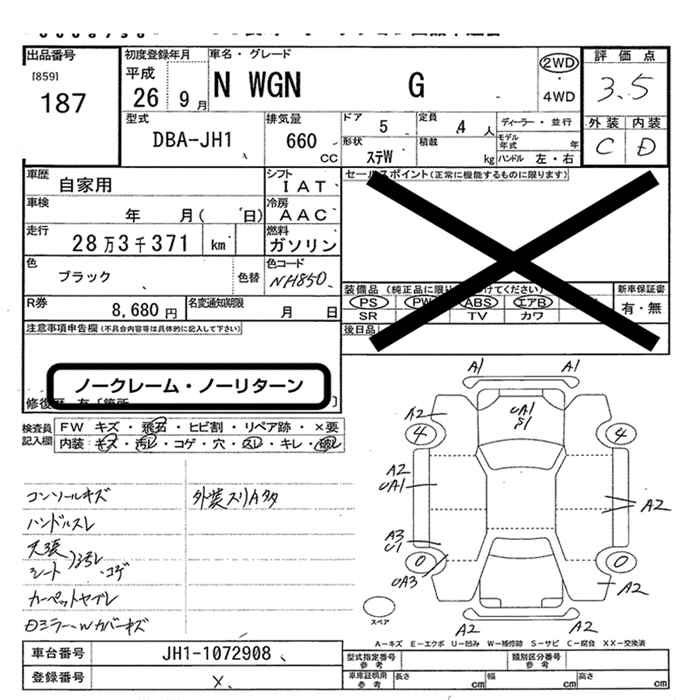 出品番号
[859]
187
初度登録年月
平成
26 9 月
車名・グレード
N WGN G
2WD
・
4WD
評価点
3.5
外装 内装
C D
型式
DBA-JH1
排気量
660
CC
ドア
5
定員
4 人
ディーラー・並行
モデル年式 年
形状
ステW
積載
kg
ハンドル 左・右
車歴
自家用
シフト
IAT
車検
年 月( 日)
冷房
AAC
走行
28万3千371 km
燃料
ガソリン
色
ブラック
色替
色コード
NH850
R券
8,680 円
名変通知期限
月 日
セールスポイント(正常に機能するものに限ります)
装備品
PS PW ABS エアB
SR TV カワ
後日品
新車保証書
有・無
注意事項申告欄(不具合内容等は具体的に記入して下さい)
ノークレーム・ノーリターン
検査員
記入欄
FW キズ・飛石・ヒビ割・リペア跡・×要
内装 キズ・汚レ・コゲ・穴・スレ・キレ・破レ
コンソールキズ
外装スリA多
ハンドルスレ
天張
シート
汚レ
・コゲ
カーペットヤブレ
DミラーWカバーキズ
A1 A1
A2
UA1
S1
4 4
A2
UA1
A2
A3
U1
0 0
UA3
A2
A2 A2
スペア
A－キズ E－エクボ U－凹み W－補修跡 S－サビ C－腐食 XX－交換済
車台番号
JH1-1072908
登録番号
×
型式指定番号
参考
類別区分番号
参考
車庫証明用
参考
長さ cm
幅 cm
高さ cm